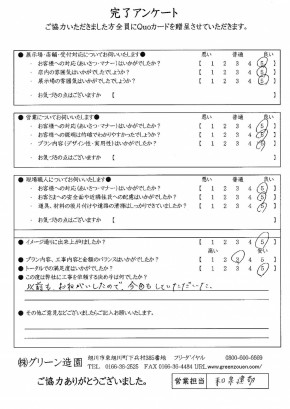 完了アンケート
ご協力いただきました方全員にQuoカードを贈呈させていただきます。
●展示場・店舗・受付対応についてお伺いします● 悪い 普通 良い
・お客様への対応(あいさつ・マナー)はいかがでしたか? 【 1 2 3 4 5 】
・店内の雰囲気はいかがでしたか? 【 1 2 3 4 5 】
・展示場の雰囲気はいかがでしたか? 【 1 2 3 4 5 】
・お気づきの点はございますか 【 】
●営業についてお伺いします● 悪い 普通 良い
・お客様への対応(あいさつ・マナー)はいかがでしたか? 【 1 2 3 4 5 】
・お客様への説明は的確でわかりやすかったでしょうか? 【 1 2 3 4 5 】
・プラン内容(デザイン性・実用性)はいかがでしたか? 【 1 2 3 4 5 】
・お気づきの点はございますか 【 】
●現場職人についてお伺いします● 悪い 普通 良い
・お客様への対応(あいさつ・マナー)はいかがでしたか? 【 1 2 3 4 5 】
・お客さまへの安全面や近隣住民への配慮はいかがでしたか? 【 1 2 3 4 5 】
・道具、材料の後片付けや道路の清掃はしっかりできていましたか? 【 1 2 3 4 5 】
・お気づきの点はございますか 【 】
●イメージ通りに出来上がりましたか? 【 1 2 3 4 5 】
高い 安い
●プラン内容、工事内容と金額のバランスはいかがでしたか? 【 1 2 3 4 5 】
●トータルでの満足度はいかがでしたか? 【 1 2 3 4 5 】
●この度は弊社に工事を依頼する決め手は何でしたか?
以前も おねがいしたので、今回もしていただいた。
●その他ご意見などございましたらご記入お願いいたします。
㈱グリーン造園 旭川市東旭川町下兵村385番地 フリーダイヤル 0800-800-6669
TEL 0166-36-2525 FAX 0166-36-4484 URL.www.greenzouen.com/
ご協力ありがとうございました。 営業担当